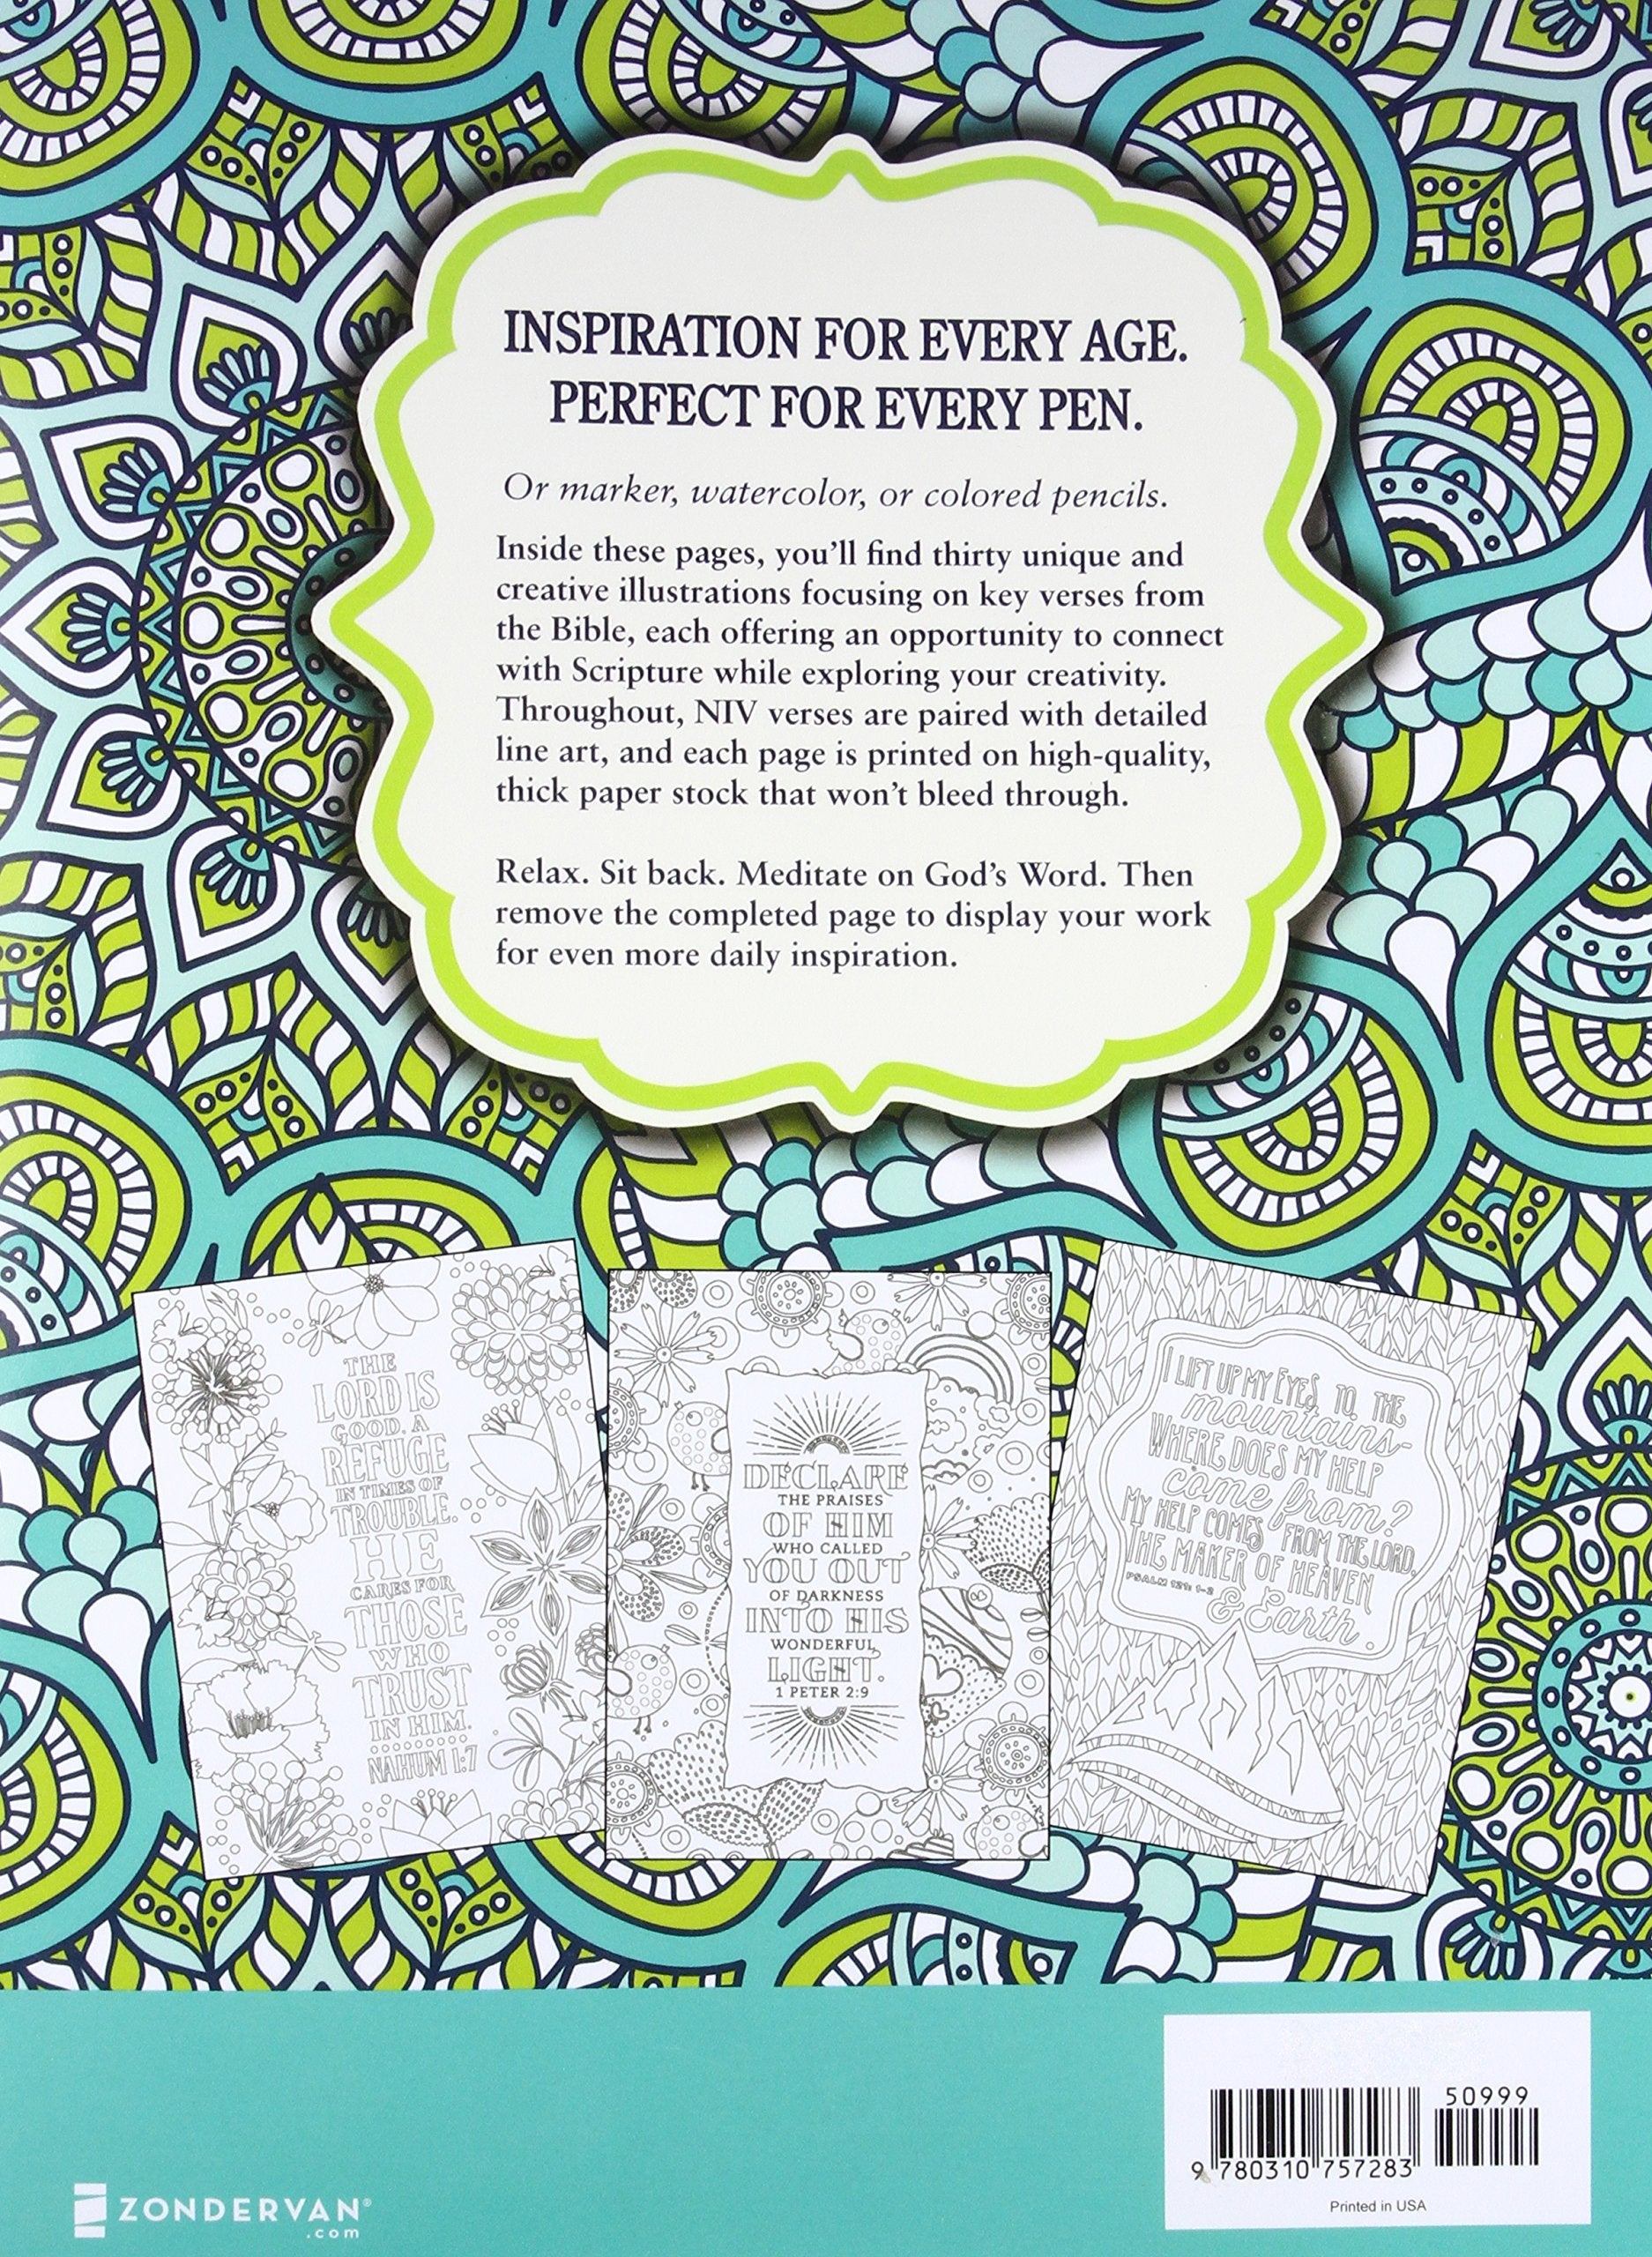 INSPIRATION FOR EVERY AGE.
PERFECT FOR EVERY PEN.
Or marker, watercolor, or colored pencils.
Inside these pages, you'll find thirty unique and
creative illustrations focusing on key verses from
the Bible, each offering an opportunity to connect
with Scripture while exploring your creativity.
Throughout, NIV verses are paired with detailed
line art, and each page is printed on high-quality,
thick paper stock that won't bleed through.
Relax. Sit back. Meditate on God's Word. Then
remove the completed page to display your work
for even more daily inspiration.
THE
LORD IS
GOOD, A
REFUGE
IN TIMES OF
TROUBLE.
HE
CARES FOR
THOSE
WHO
TRUST
IN HIM.
NAHUM 1:7
DECLARE
THE PRAISES
OF HIM
WHO CALLED
YOU OUT
OF DARKNESS
INTO HIS
WONDERFUL
LIGHT.
1 PETER 2:9
I LIFT UP MY EYES TO THE
mountains-
WHERE DOES MY HELP
come from?
MY HELP COMES FROM THE LORD,
THE MAKER OF HEAVEN
PSALM 121: 1-2
& Earth.
ZONDERVAN®
.com
50999
9 780310 757283
Printed in USA